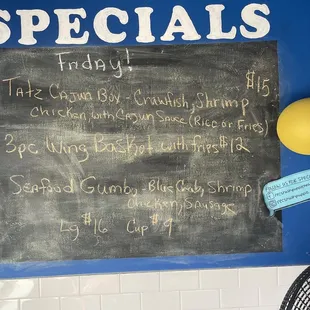 SPECIALS
Friday!
Tatz Cajun Boy - Crawfish, Shrimp $15
Chicken, with Cajun Sauce (Rice or Fries)
3pc Wing Basket with fries $12
Seafood Gumby - Blue Crab, Shrimp
Chicken, Snusage
Lg $16 Cup $9